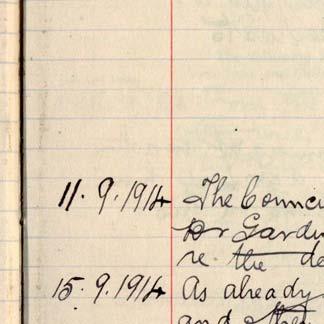 11.9.1914 The Counci
Dr Gardu
re the de
15.9.1914 As already
and other